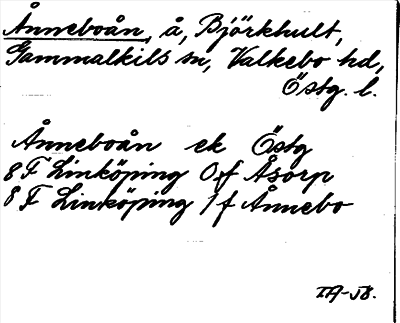 Ånneboån, å, Björkhult,
Gammalkils sn, Valkebo hd,
Östg. l.
Ånneboån ek Östg
8F Linköping 0f Åsorp
8F Linköping 1f Ånnebo
IA-58.